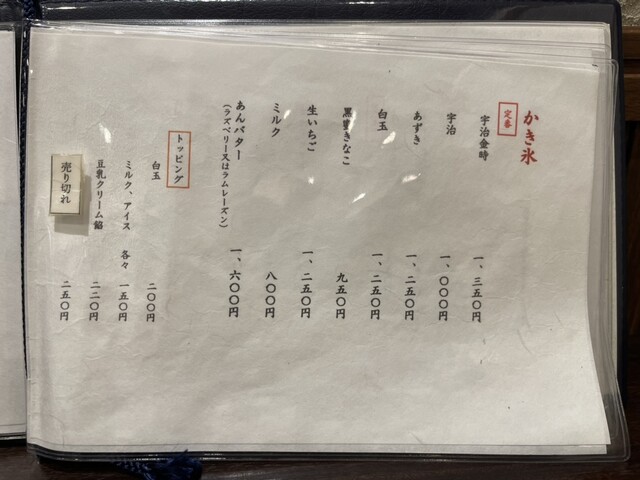 かき氷
定番
宇治金時 一、三五〇円
宇治 一、〇〇〇円
あずき 一、二五〇円
白玉 一、二五〇円
黒蜜きなこ 九五〇円
生いちご 一、二五〇円
ミルク 八〇〇円
あんバター 一、六〇〇円
(ラズベリー又はラムレーズン)
トッピング
白玉 二〇〇円
ミルク、アイス 各々 一五〇円
豆乳クリーム餡 二二〇円
売り切れ 二五〇円